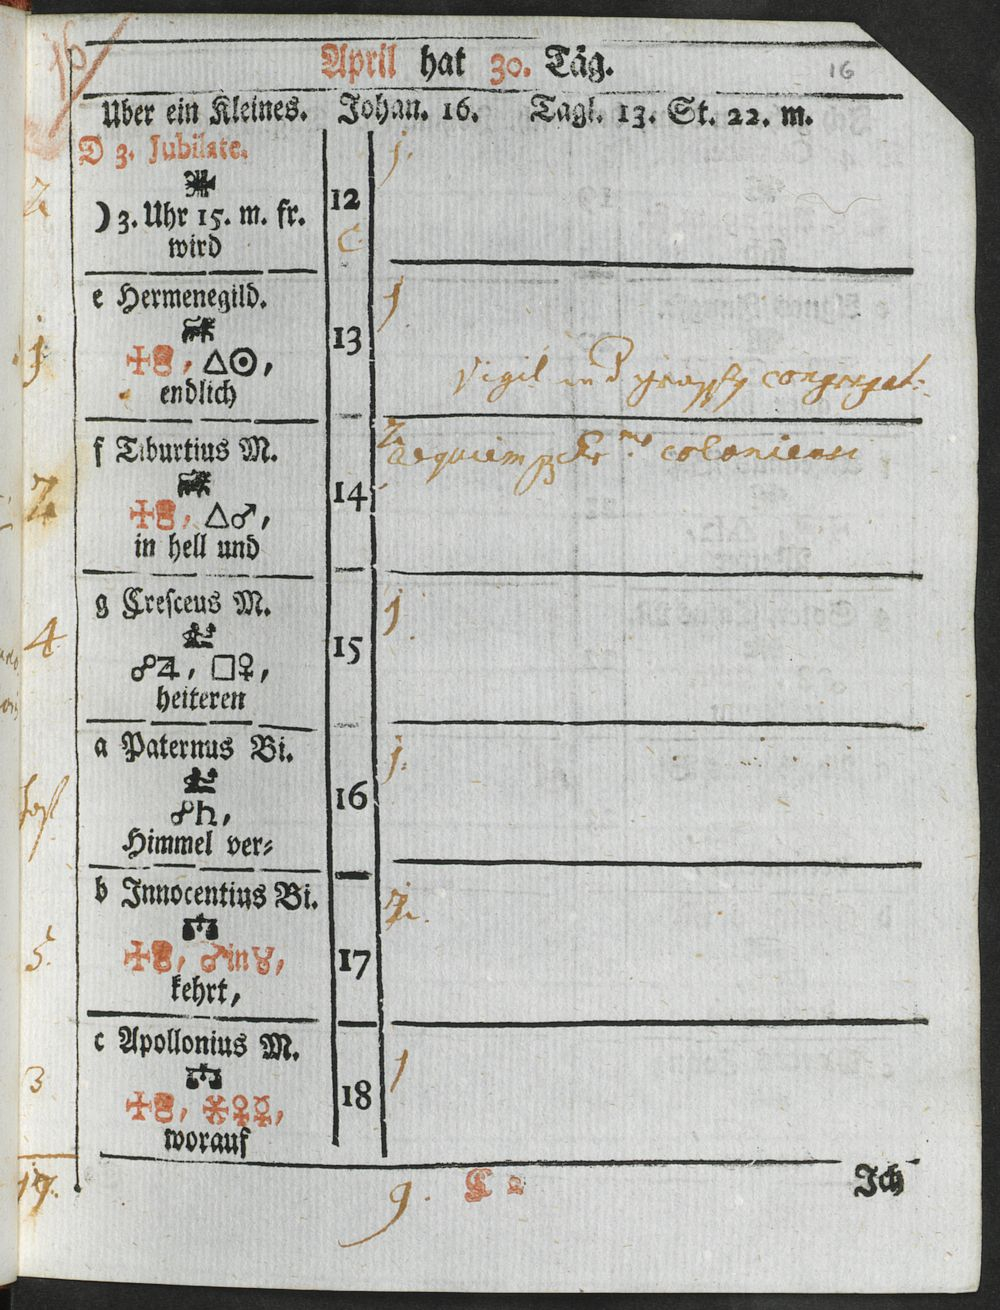 April hat 30. Täg.
16
Uber ein Kleines. Johan. 16. Tagl. 13. St. 22. m.
D 3. Jubilate.
☽ 3. Uhr 15. m. fr.
wird
12
j.
C.
e Hermenegild.
, △☉,
endlich
13
j
Vigil in congregat:
f Tiburtius M.
, △♂,
in hell und
14
2
Requiem coloniensi
g Cresceus M.
☍♃, □♀,
heiteren
15
j.
a Paternus Bi.
☍♄,
Himmel ver⸗
16
j.
b Innocentius Bi.
, ♂in♉,
kehrt,
17
2.
c Apollonius M.
, ⚹♀☿,
worauf
18
j
2
j
2
4
5.
3
19.
9.
C 2
Ich